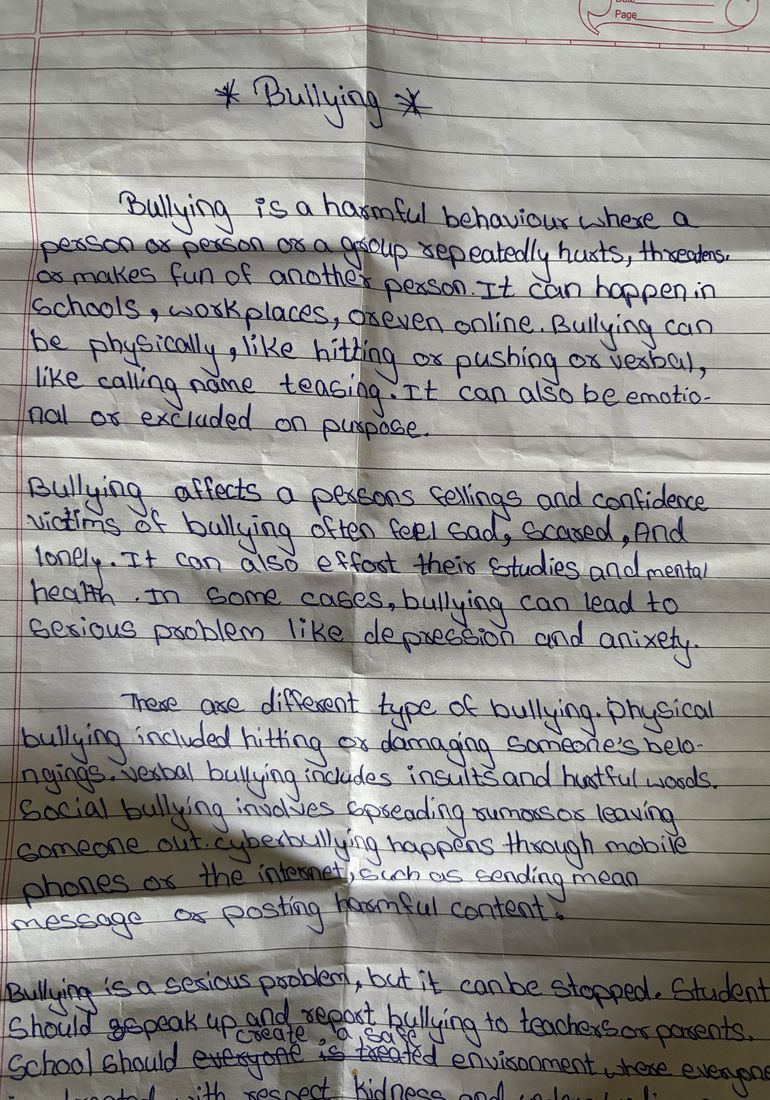 Page
* Bullying *
Bullying is a harmful behaviour where a
person or person or a group repeatedly hurts, threatens.
or makes fun of another person. It can happen in
schools, workplaces, or even online. Bullying can
be physically, like hitting or pushing or verbal,
like calling name teasing. It can also be emotio-
nal or excluded on purpose.
Bullying affects a persons fellings and confidence
victims of bullying often feel sad, scared, And
lonely. It can also effort their studies and mental
health. In some cases, bullying can lead to
serious problem like depression and anixety.
There are different type of bullying. physical
bullying included hitting or damaging someone's belo-
ngings. verbal bullying includes insults and hurtful words.
Social bullying involves spreading rumors or leaving
someone out. cyberbullying happens through mobile
phones or the internet, such as sending mean
message or posting harmful content.
Bullying is a serious problem, but it can be stopped. Student
should speak up and report bullying to teachers or parents.
create a safe
School should everyone is treated environment where everyone
with respect kidness and